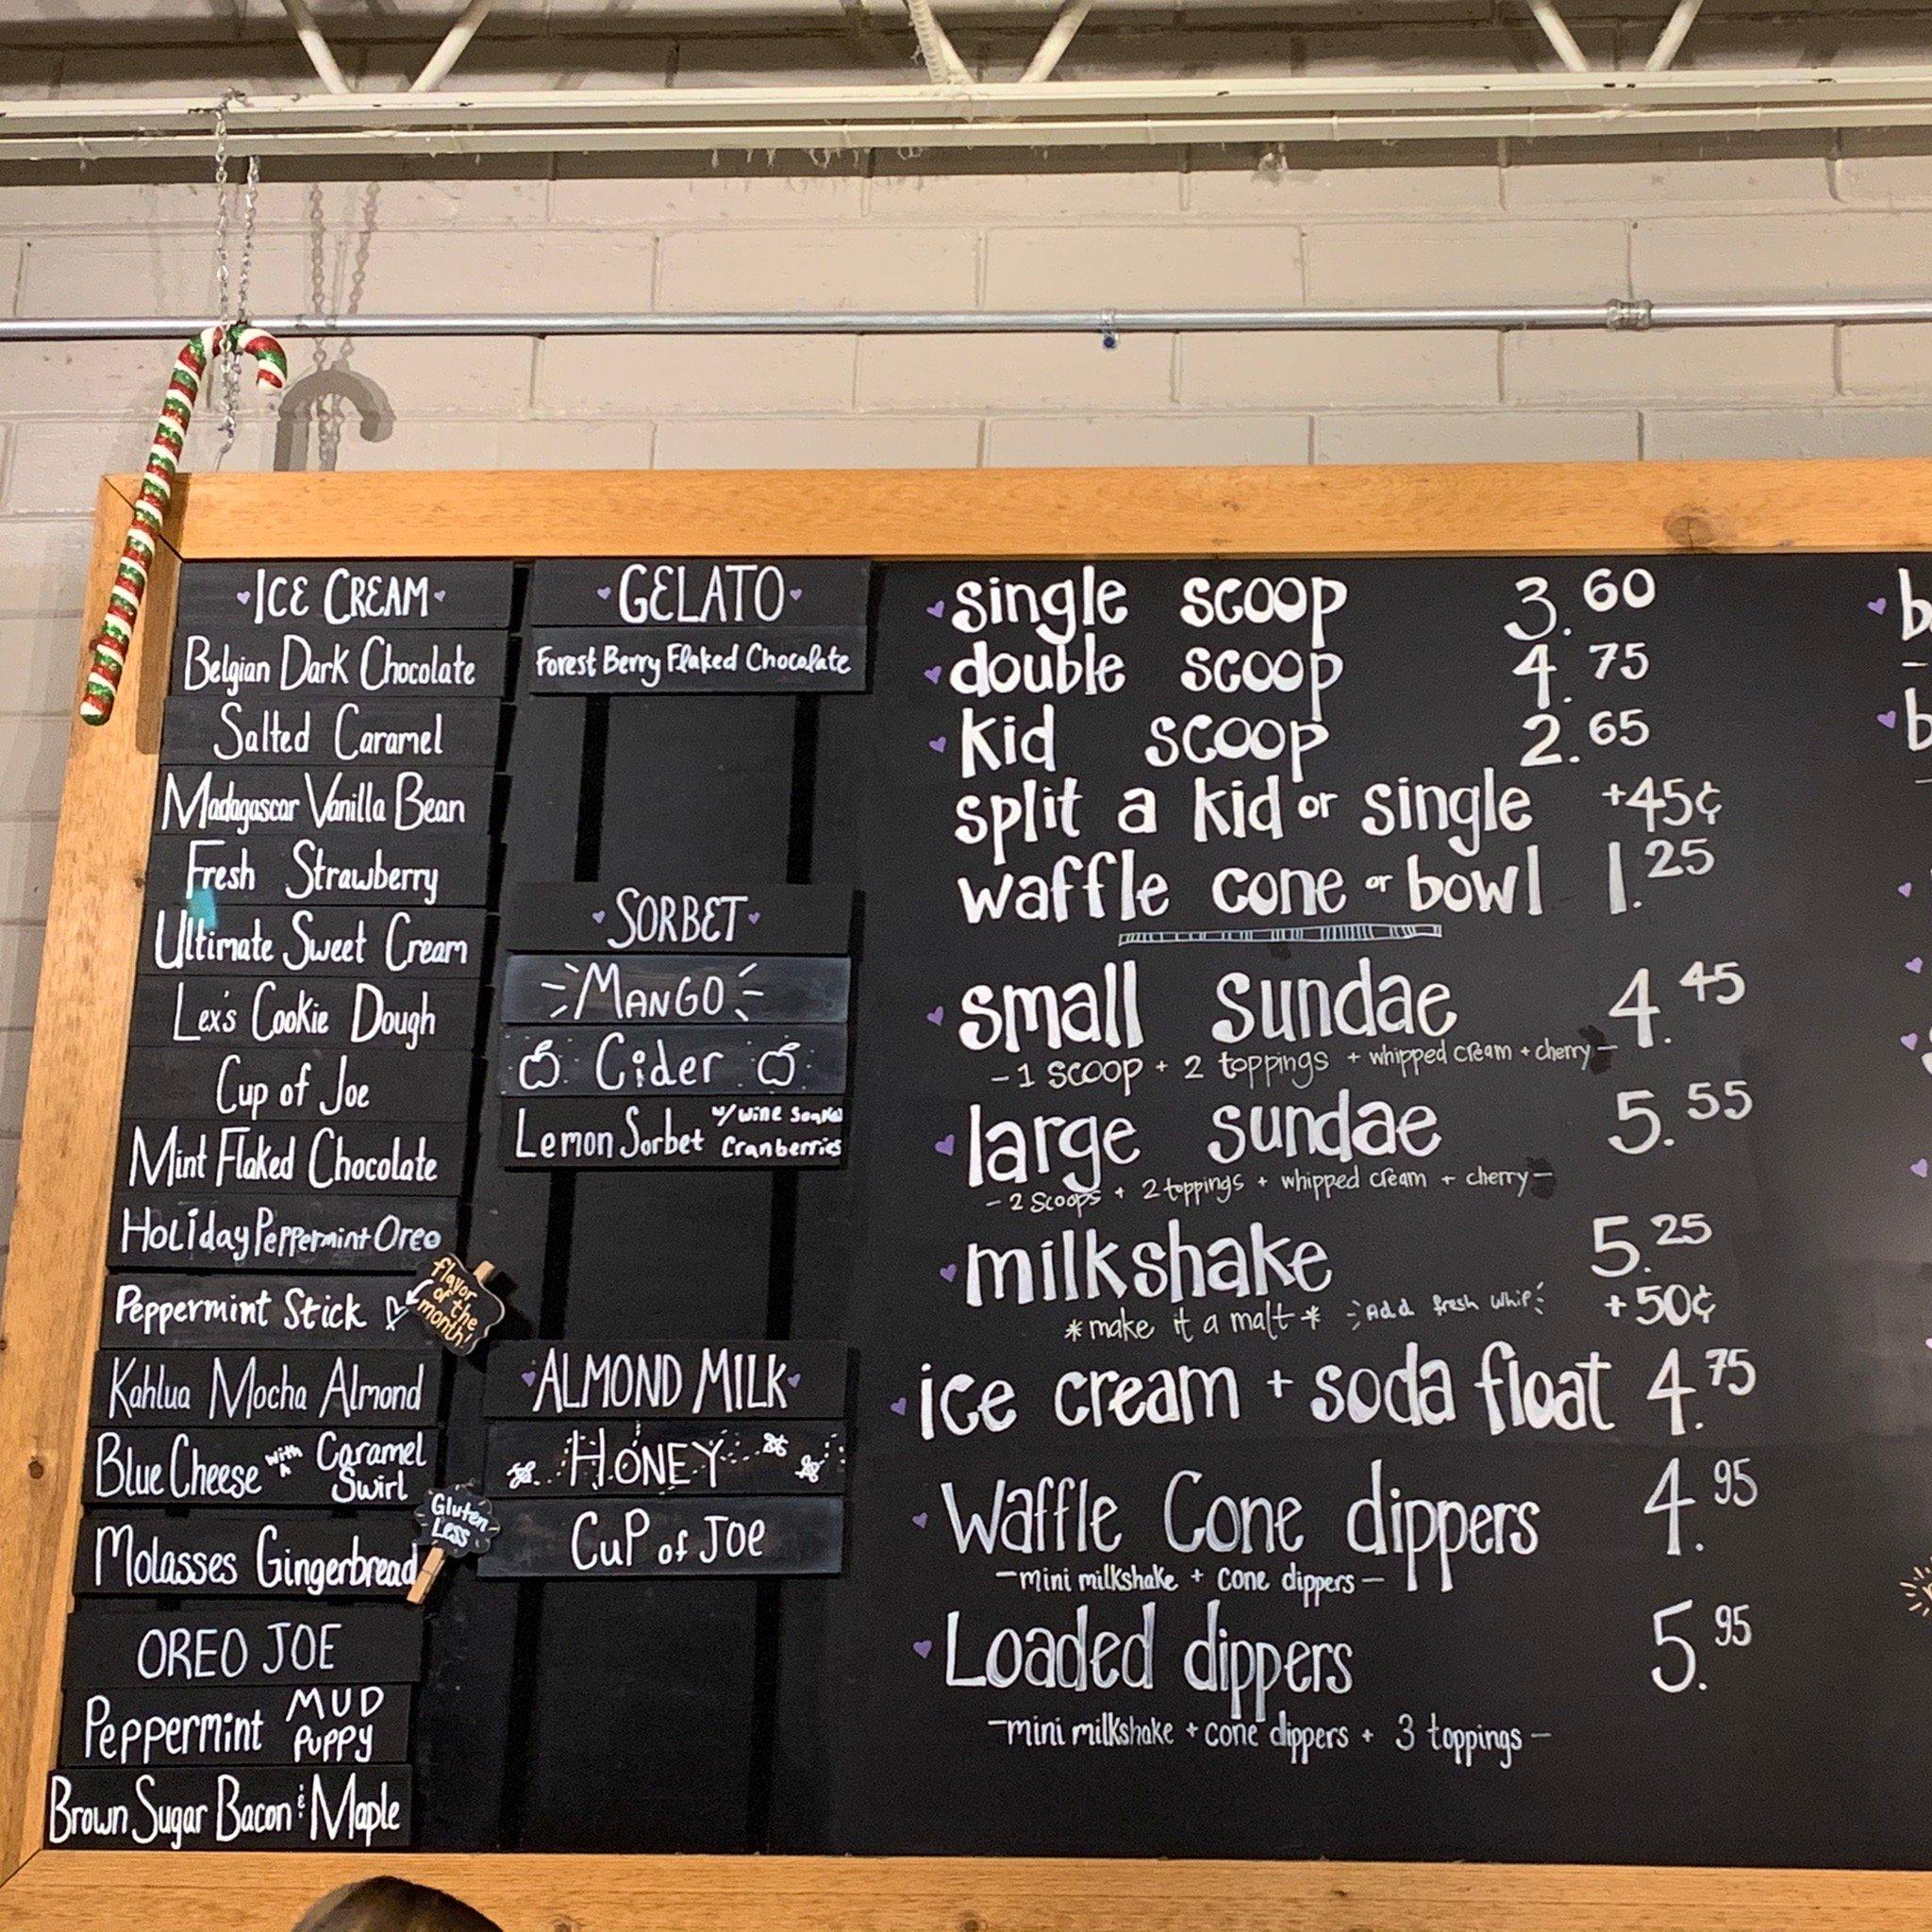 ICE CREAM
Belgian Dark Chocolate
Salted Caramel
Madagascar Vanilla Bean
Fresh Strawberry
Ultimate Sweet Cream
Lex's Cookie Dough
Cup of Joe
Mint Flaked Chocolate
Holiday Peppermint Oreo
Peppermint Stick
flavor
of the
month!
Kahlua Mocha Almond
Blue Cheese with A Caramel
Swirl
Gluten
Less
Molasses Gingerbread
OREO JOE
Peppermint MUD
Puppy
Brown Sugar Bacon & Maple
GELATO
Forest Berry Flaked Chocolate
SORBET
MANGO
Cider
Lemon Sorbet w/ Wine Soaked
Cranberries
ALMOND MILK
HONEY
CUP of JOE
single scoop 3.60
double scoop 4.75
kid scoop 2.65
split a kid or single +45¢
waffle cone or bowl 1.25
small sundae 4.45
- 1 scoop + 2 toppings + whipped cream + cherry -
large sundae 5.55
- 2 scoops + 2 toppings + whipped cream + cherry -
milkshake 5.25
* make it a malt * Add fresh whip +50¢
ice cream + soda float 4.75
Waffle Cone dippers 4.95
- mini milkshake + cone dippers -
Loaded dippers 5.95
- mini milkshake + cone dippers + 3 toppings -